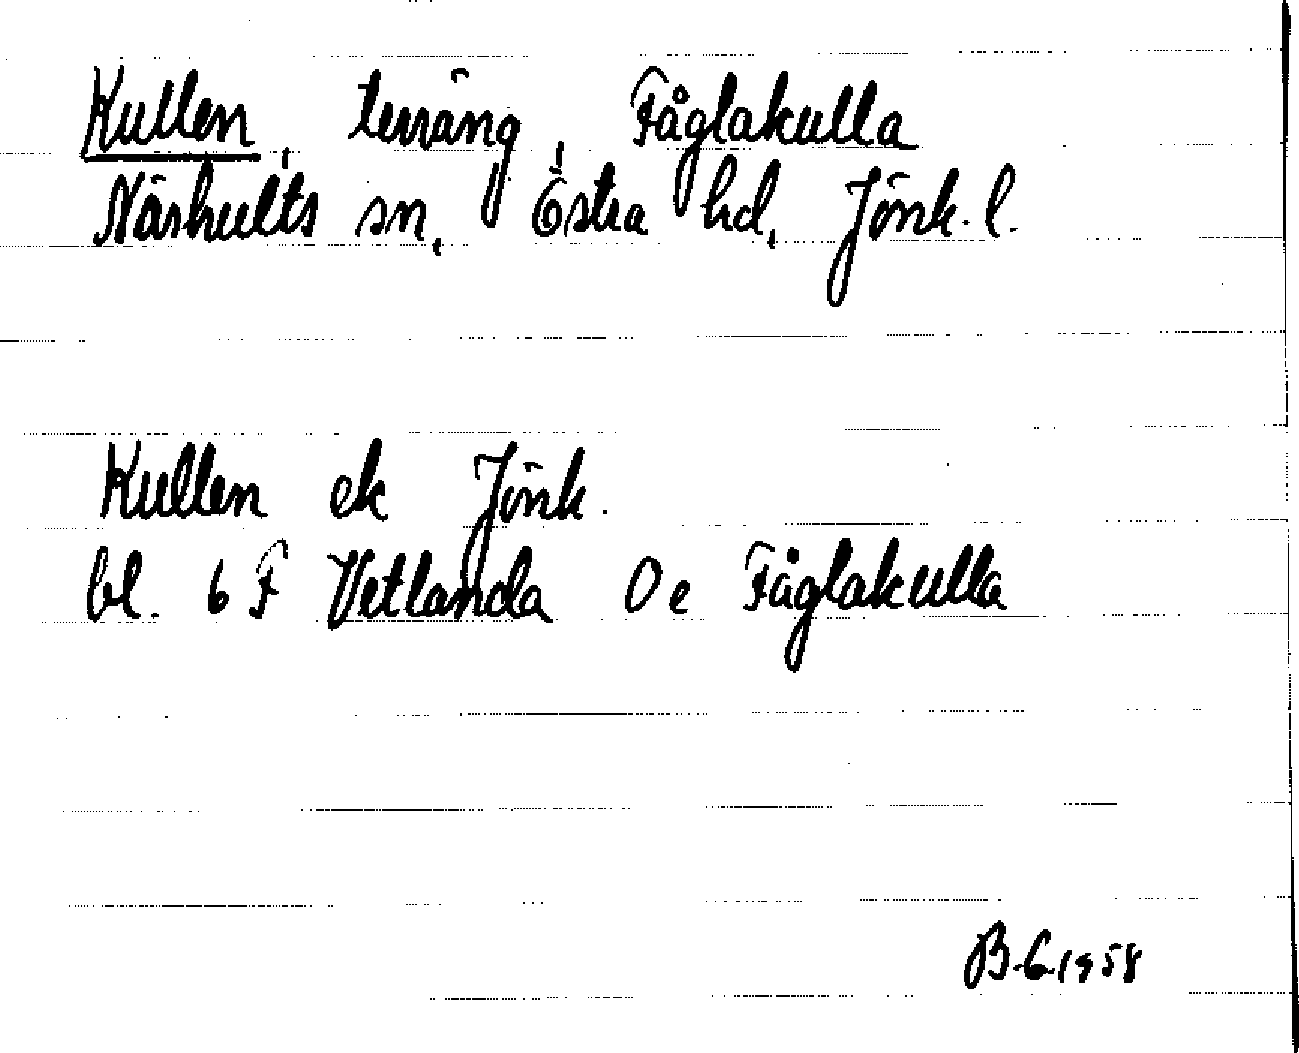 Kullen, terräng, Fåglakulla
Näshults sn, Östra hd, Jönk. l.
Kullen ek Jönk.
bl. 6 F Vetlanda 0 e Fåglakulla
B-G 1958